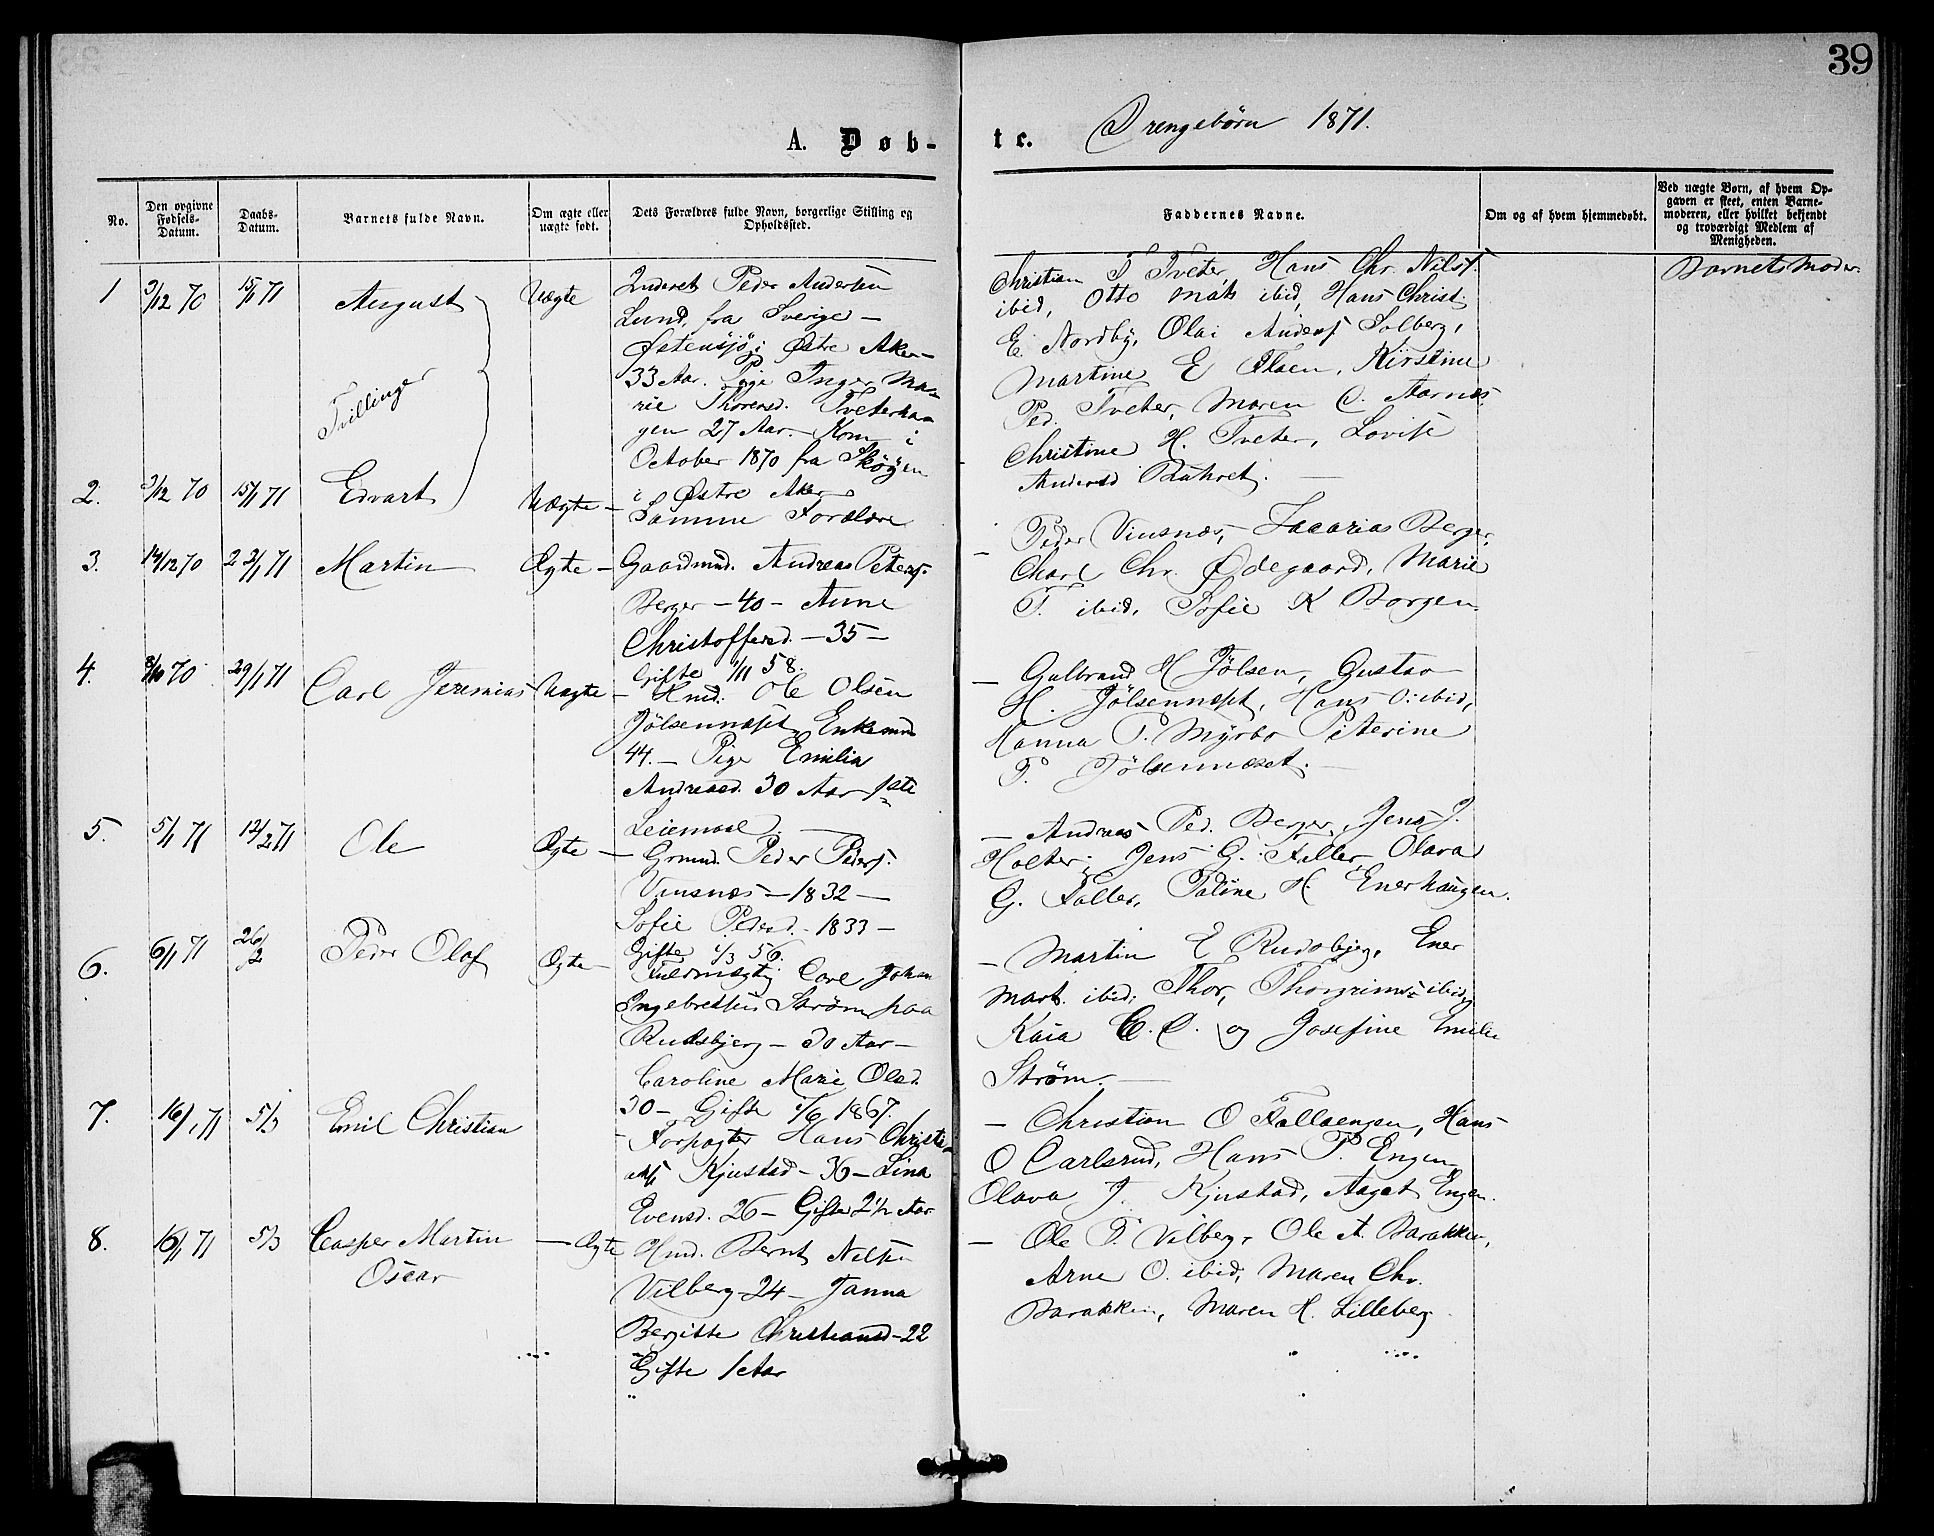 39
A. Døb-
te.
Drengebørn 1871.
No.
Den opgivne Fødsels-Datum.
Daabs-Datum.
Barnets fulde Navn.
Om ægte eller uægte født.
Dets Forældres fulde Navn, borgerlige Stilling og Opholdssted.
Faddernes Navne.
Om og af hvem hjemmedøbt.
Ved uægte Børn, af hvem Op-
gaven er skeet, enten Barne-
moderen, eller hvilket bekjendt
og troværdigt Medlem af
Menigheden.
1 3/12 70 15/1 71 August Uægte
Peder Andersen
Lund, fra Sverige –
Østensjø i Østre Aker –
33 Aar. Pige Inger Ma-
rie Thoresd. Tveterha-
gen 27 Aar. Kom i
October 1870 fra Skøyen
i Østre Aker
Tvillinger
Christian T Tveter, Hans Chr. Nilsf.
ibid, Otto Mats ibid, Hans Christ.
E. Nordby, Olai Andersf Solberg,
Martine E Olsen, Kirstine
Ped. Tveter, Maren C. Aarnes
Christine H. Tveter, Lovise
Andersd
Barnets Moder.
2. 3/12 70 15/1 71 Edvart Uægte –
Samme Forældre
3. 14/12 70 22/1 71 Martin Ægte –
Gaardmd. Andreas Petersf.
Berger – 40 – Anne
Christoffersd. – 35 –
Gifte 1/11 58.
– Peder Vinsnæs, Zacarias Berger,
Charl Chr. Ødegaard, Marie
T. ibid, Sofie K Borgen.
4. 8/10 70 29/1 71 Carl Jeremias Uægte
– Hmd. Ole Olsen
Jølsennæset, Enkemd
44. – Pige Emilia
Andreasd. 30 Aar 1ste
Leiemaal.
– Gulbrand H Jølsen, Gustav
H. Jølsennæset, Hans O. ibid,
Hanna P. Myrbo Peterine
T. Jølsennæset. –
5. 5/1 71 12/2 71 Ole Ægte
– Grmd. Peder Pedersf.
Vinsnæs – 1832 –
Sofie Pedersd. – 1833 –
Gifte 1/3 56.
– Andreas Ped. Berger, Jens J.
Holter, Jens G. Faller, Olava
G. Faller, Paline H. Enerhaugen.
6. 6/1 71 26/2 Peder Olaf Ægte –
Fuldmægtig Carl Johan
Ingebretsen Strøm paa
Rudsbjerg – 30 Aar –
Caroline Marie Olsd.
30 – Gifte 1/6 1867.
– Martin E Rudsbjerg, Ener
Mart. ibid; Thor Thorgrimsen ibid,
Kaia C. C. og Josefine Emilie
Strøm. –
7. 16/1 71 5/3 Emil Christian
– Forpagter Hans Christi-
ansf Kjustad – 36 – Lina
Evensd. 26 – Gifte 2½ Aar
– Christian O Fallaengen, Hans
O Carlsrud, Hans P. Engen
Olava J. Kjustad, Aagot Engen.
8. 16/1 71 5/3 Casper Martin
Oscar
– Ægte
Hmd. Bernt Nilsen
Vilberg – 24 – Janna
Bergitte Christiansd – 22
Gifte 1 Aar
– Ole T. Vilberg, Ole A. Barakken,
Arne O. ibid, Maren Chr.
Barakken, Maren H. Lilleberg.